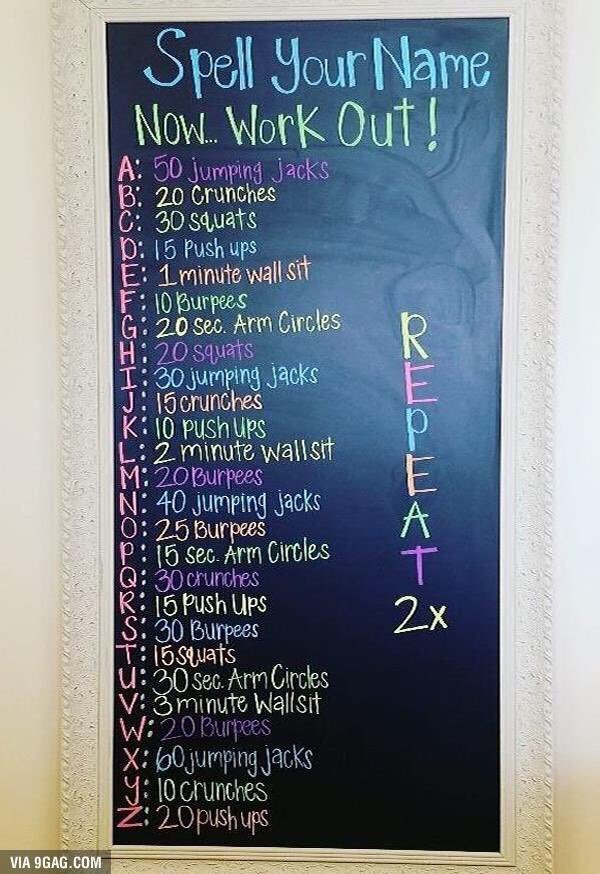 Spell Your Name
Now... Work Out!
A: 50 jumping jacks
B: 20 Crunches
C: 30 squats
D: 15 Push ups
E: 1 minute wall sit
F: 10 Burpees
G: 20 sec. Arm Circles
H: 20 squats
I: 30 jumping jacks
J: 15 crunches
K: 10 push ups
L: 2 minute wall sit
M: 20 Burpees
N: 40 jumping jacks
O: 25 Burpees
P: 15 sec. Arm Circles
Q: 30 crunches
R: 15 Push Ups
S: 30 Burpees
T: 15 squats
U: 30 sec. Arm Circles
V: 3 minute Wall sit
W: 20 Burpees
X: 60 jumping jacks
y: 10 crunches
Z: 20 push ups
REPEAT
2x
VIA 9GAG.COM